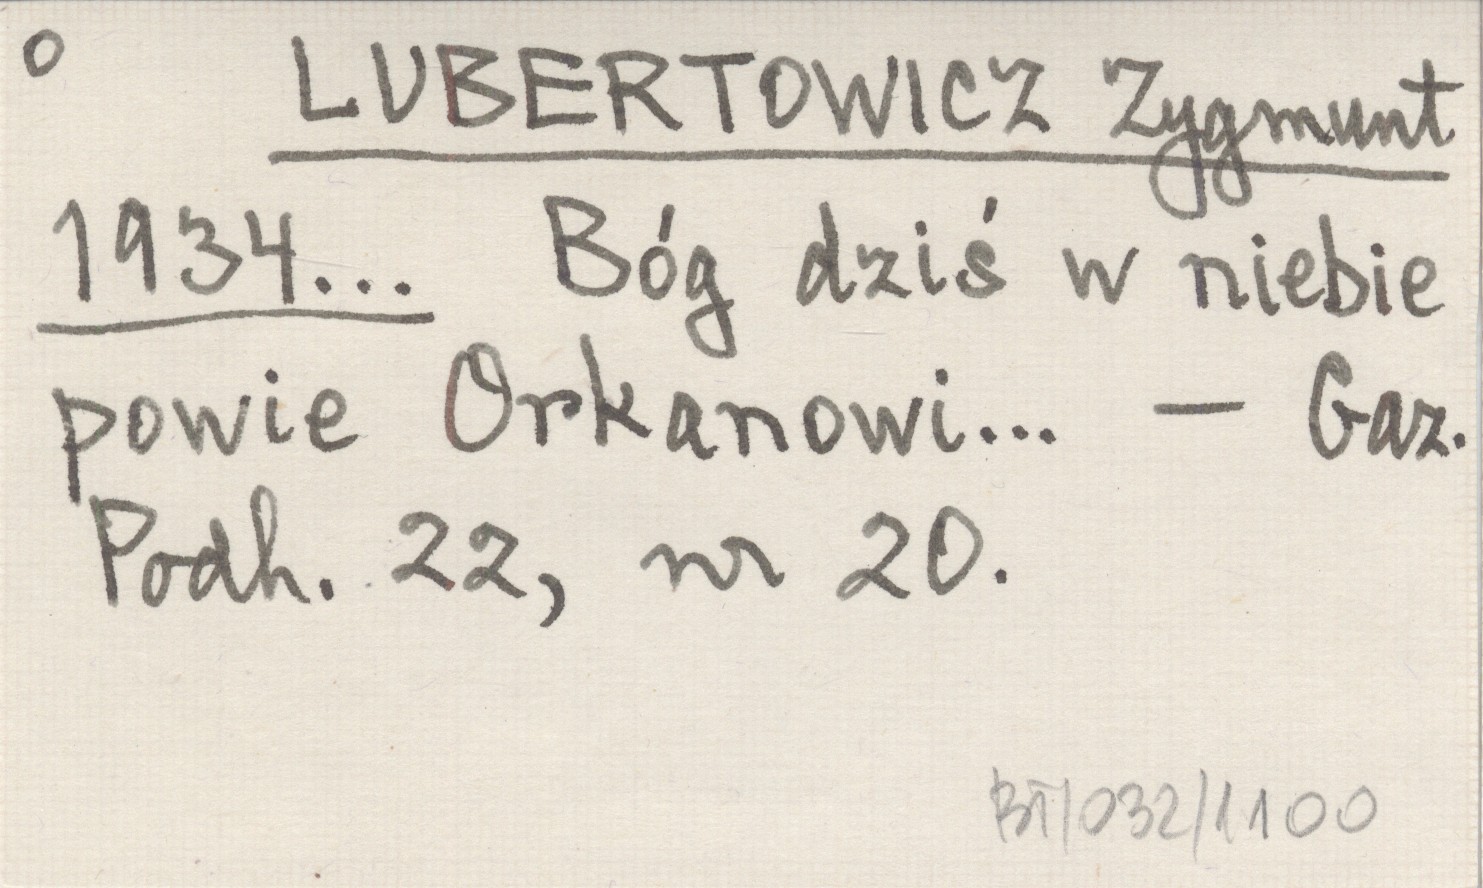 O LUBERTOWICZ Zygmunt
1934... Bóg dziś w niebie
powie Orkanowi... — Gaz.
Podh. 22, nr 20.
BT/032/1100